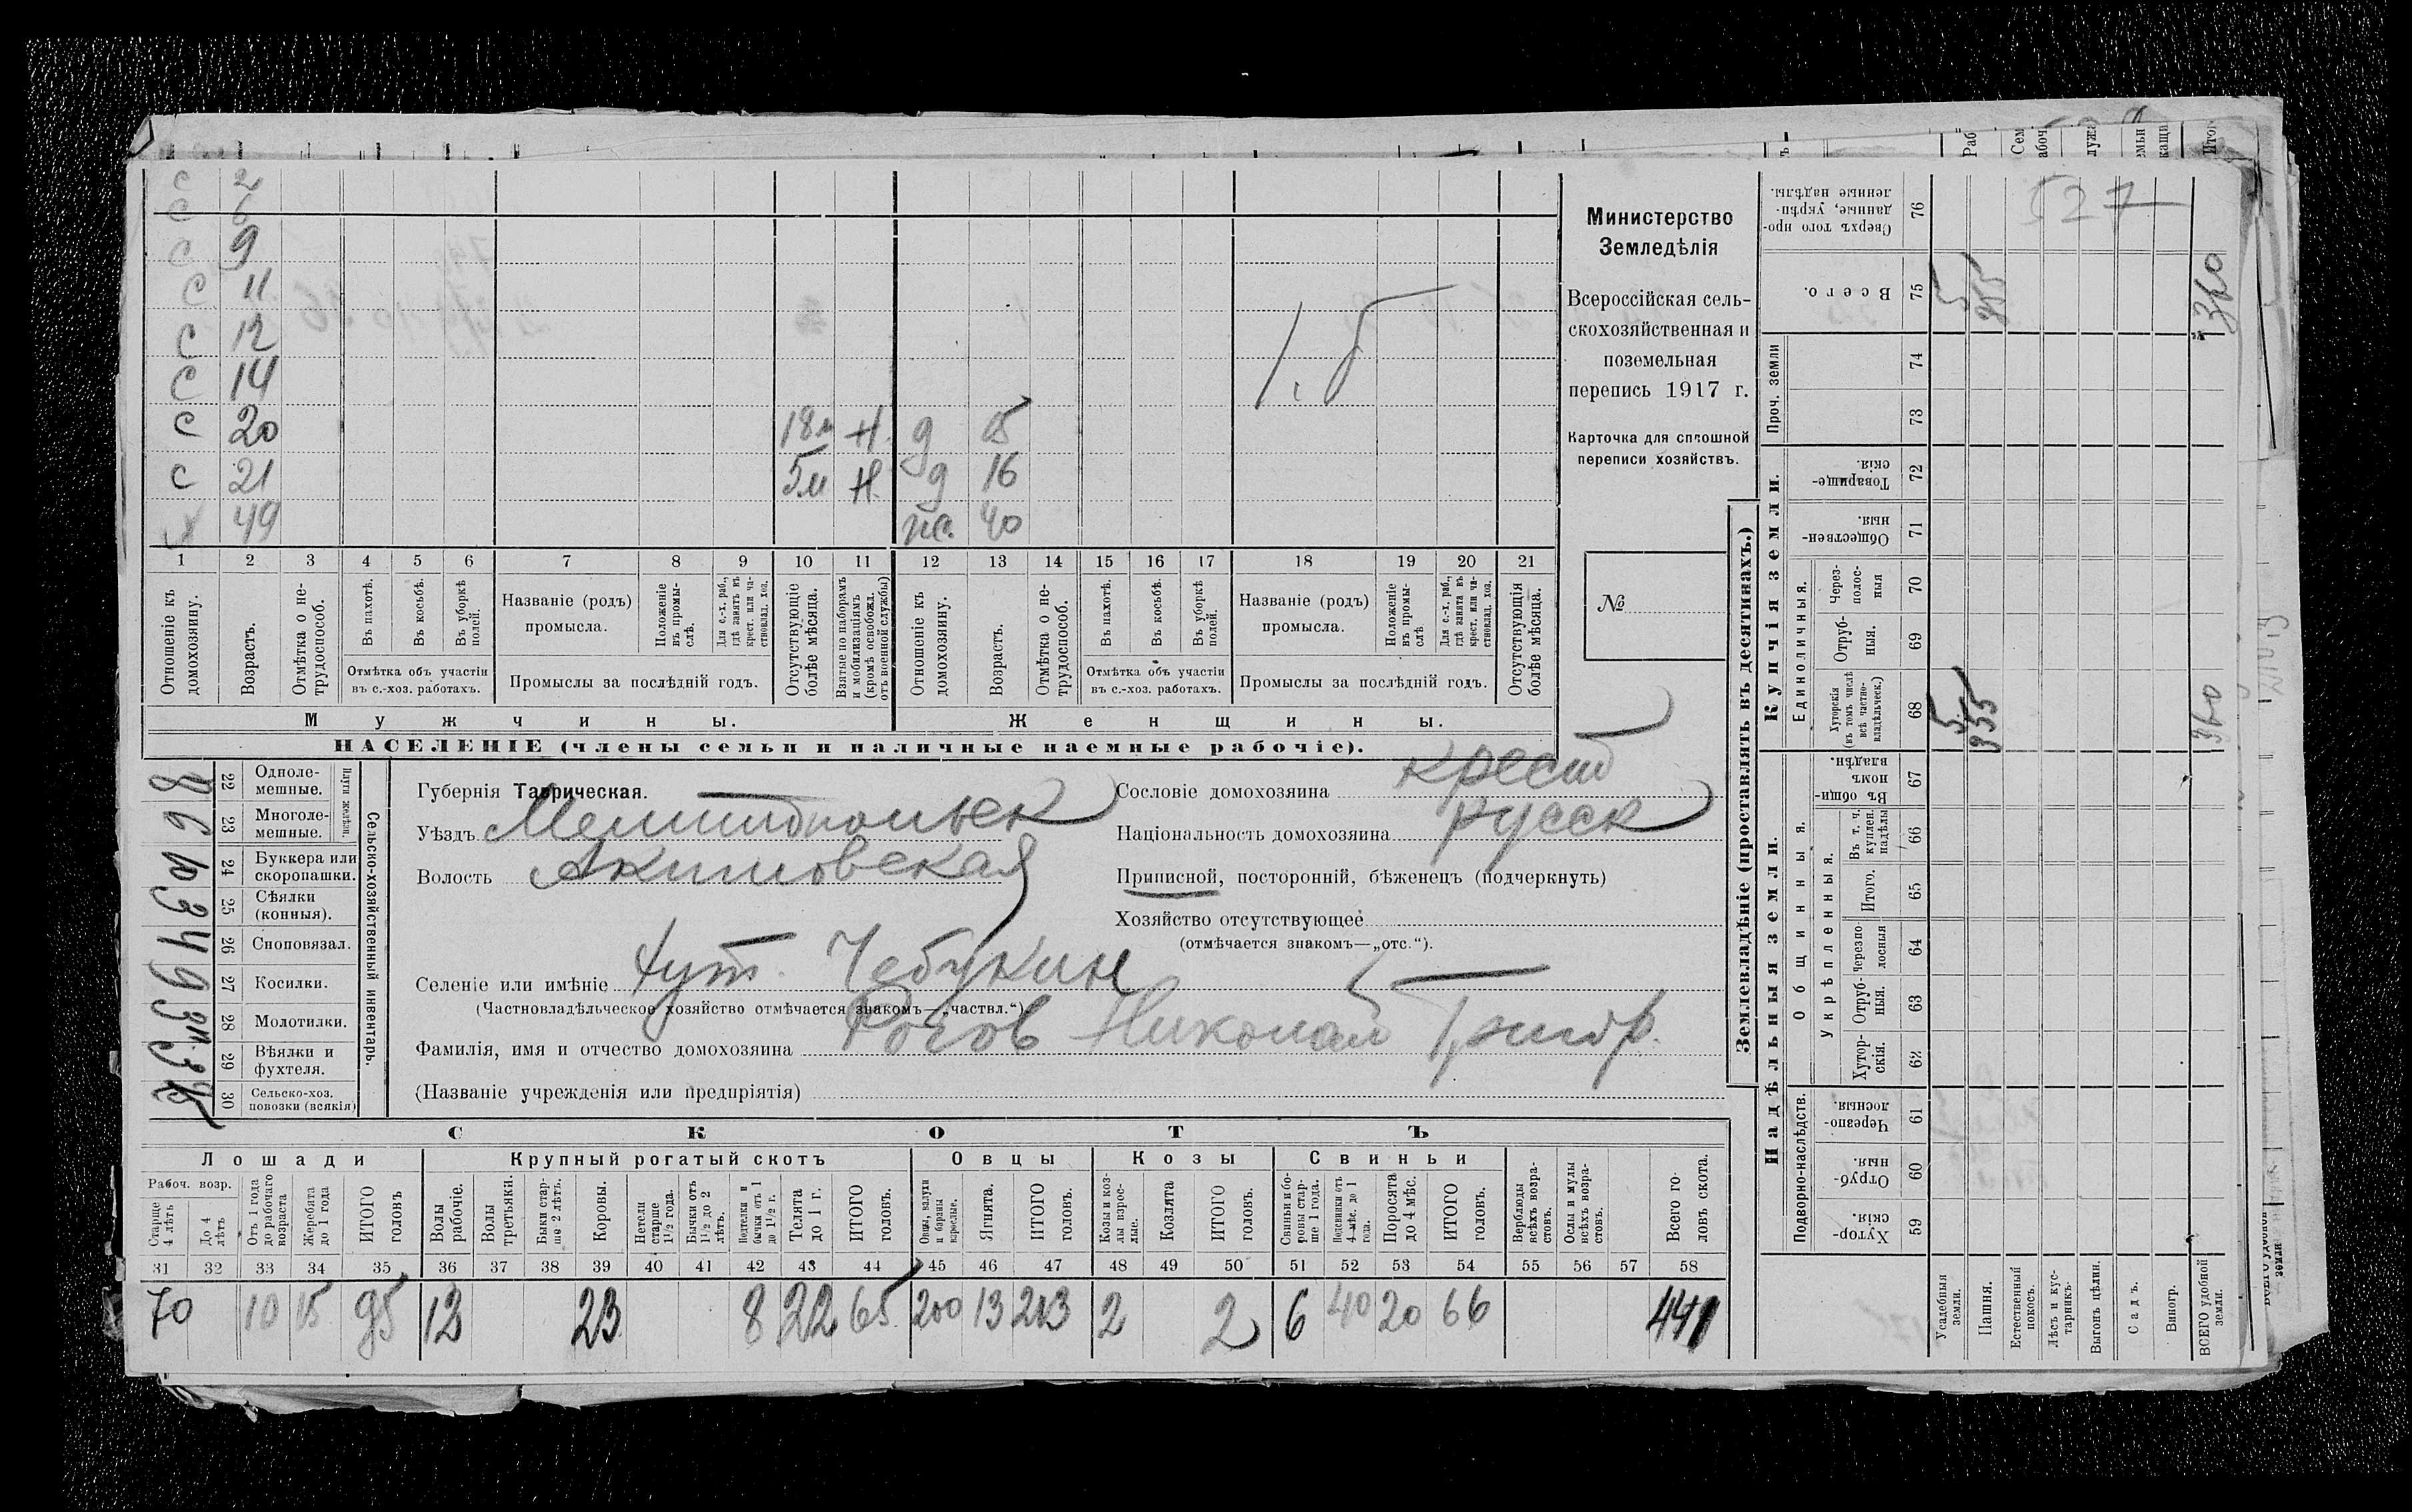 с 2
с 6
с 9
с 11
с 12
с 14
с 20 18м Н. д 15
с 21 5м Н. д 16
х 49 ж. 40
1 2 3 4 5 6 7 8 9 10 11 12 13 14 15 16 17 18 19 20 21
Отношеніе къ домохозяину.
Возрастъ.
Отмѣтка о не-трудоспособ.
Въ пахотѣ.
Въ косьбѣ.
Въ уборкѣ полей.
Отмѣтка объ участіи
въ с.-хоз. работахъ.
Названіе (родъ)
промысла.
Положеніе въ промы-слѣ.
Для с.-х. раб., гдѣ занятъ въ крест. или ча-стновлад. хоз.
Промыслы за послѣдній годъ.
Отсутствующіе болѣе мѣсяца.
Взятые по наборамъ и мобилизаціямъ (кромѣ освобожд. отъ военной службы)
Отношеніе къ домохозяину.
Возрастъ.
Отмѣтка о не-трудоспособ.
Въ пахотѣ.
Въ косьбѣ.
Въ уборкѣ полей.
Отмѣтка объ участіи
въ с.-хоз. работахъ.
Названіе (родъ)
промысла.
Положеніе въ промы-слѣ
Для с.-х. раб., гдѣ занята въ крест. или ча-стновлад. хоз.
Промыслы за послѣдній годъ.
Отсутствующія болѣе мѣсяца.
Мужчины.
Женщины.
НАСЕЛЕНІЕ (члены семьи и наличные наемные рабочіе).
Министерство
Земледѣлія
Всероссійская сель-
скохозяйственная и
поземельная
перепись 1917 г.
Карточка для сплошной
переписи хозяйствъ.
№
22 Одноле-мешные.
23 Многоле-мешные.
Плуги желѣзн.
24 Буккера или скоропашки.
25 Сѣялки (конныя).
26 Сноповязал.
27 Косилки.
28 Молотилки.
29 Вѣялки и фухтеля.
30 Сельско-хоз. повозки (всякія)
Сельско-хозяйственный инвентарь.
Губернія Таврическая.
Уѣздъ Мелитопольск
Волость Акимовская
Селеніе или имѣніе хут. Чебукин
(Частновладѣльческое хозяйство отмѣчается знакомъ—„частвл.“)
Фамилія, имя и отчество домохозяина Рогов Николай Григор.
(Названіе учрежденія или предпріятія)
Сословіе домохозяина крест
Національность домохозяина русск
Приписной, посторонній, бѣженецъ (подчеркнуть)
Хозяйство отсутствующее
(отмѣчается знакомъ—„отс.“).
СКОТЪ
Лошади
Рабоч. возр.
Старше 4 лѣтъ
До 4 лѣтъ
Отъ 1 года до рабочаго возраста
Жеребята до 1 года
ИТОГО головъ
Крупный рогатый скотъ
Волы рабочіе.
Волы третьяки.
Быки стар-ше 2 лѣтъ.
Коровы.
Нетели старше 1½ года.
Бычки отъ 1½ до 2 лѣтъ.
Подтелки и бычки отъ 1 до 1½ г.
Телята до 1 г.
ИТОГО головъ.
Овцы
Овцы, валухи и бараны взрослые.
Ягнята.
ИТОГО головъ.
Козы
Козы и коз-лы взрос-лые.
Козлята
ИТОГО головъ.
Свиньи
Свиньи и бо-ровы стар-ше 1 года.
Подсвинки отъ 4 мѣс. до 1 года.
Поросята до 4 мѣс.
ИТОГО головъ.
Верблюды всѣхъ возра-стовъ.
Ослы и мулы всѣхъ возра-стовъ.
Всего го-ловъ скота.
31 32 33 34 35 36 37 38 39 40 41 42 43 44 45 46 47 48 49 50 51 52 53 54 55 56 57 58
70 10 15 95 12 23 8 22 65 200 13 213 2 2 6 40 20 66 441
Землевладѣніе (проставлять въ десятинахъ.)
Купчія земли.
Надѣльныя земли.
76 Сверхъ того про-данные, укрѣп-ленные надѣлы.
75 Всего.
Проч. земли
74
73
72 Товарище-скія.
71 Обществен-ныя.
Единоличныя.
70 Через-полос-ныя
69 Отруб-ныя.
68 Хуторскія (въ томъ числѣ всѣ частно-владѣльческ.)
67 Въ общин-номъ владѣн.
Общинныя.
Укрѣпленныя.
66 Въ т. ч. куплен. надѣлы
65 Итого.
64 Черезпо-лосныя
63 Отруб-ныя.
62 Хутор-скія.
Подворно-наслѣдств.
61 Черезпо-лосныя.
60 Отруб-ныя.
59 Хутор-скія.
Усадебныя земли.
Пашня.
Естественный покосъ.
Лѣсъ и кус-тарникъ.
Выгонъ цѣлин.
Садъ.
Виногр.
ВСЕГО удобной земли.
527
5 355 360
5 355 360